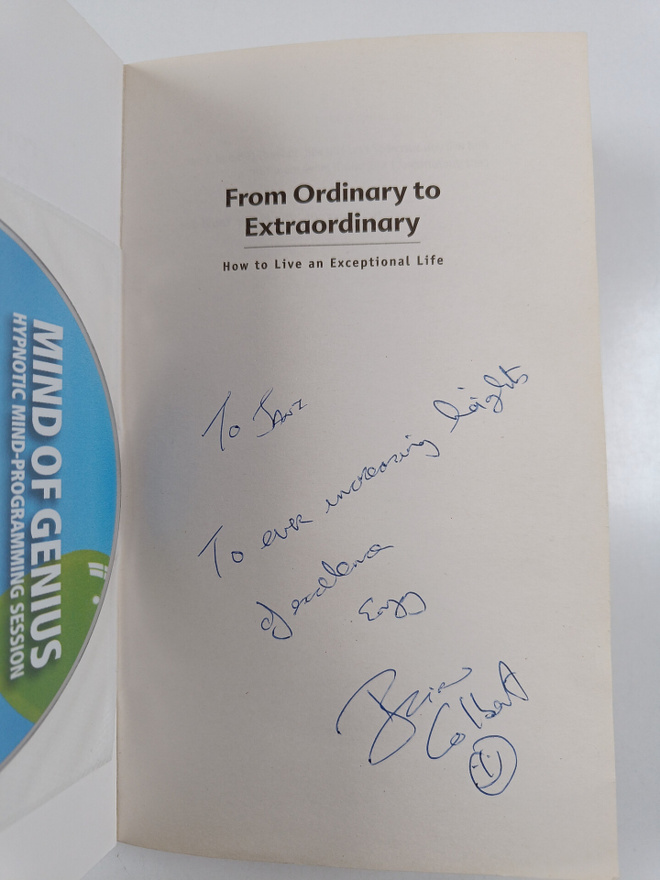 From Ordinary to
Extraordinary
How to Live an Exceptional Life
To
To ever increasing heights
of excellence
Enjoy
Brian
Colbert
MIND OF GENIUS
HYPNOTIC MIND-PROGRAMMING SESSION